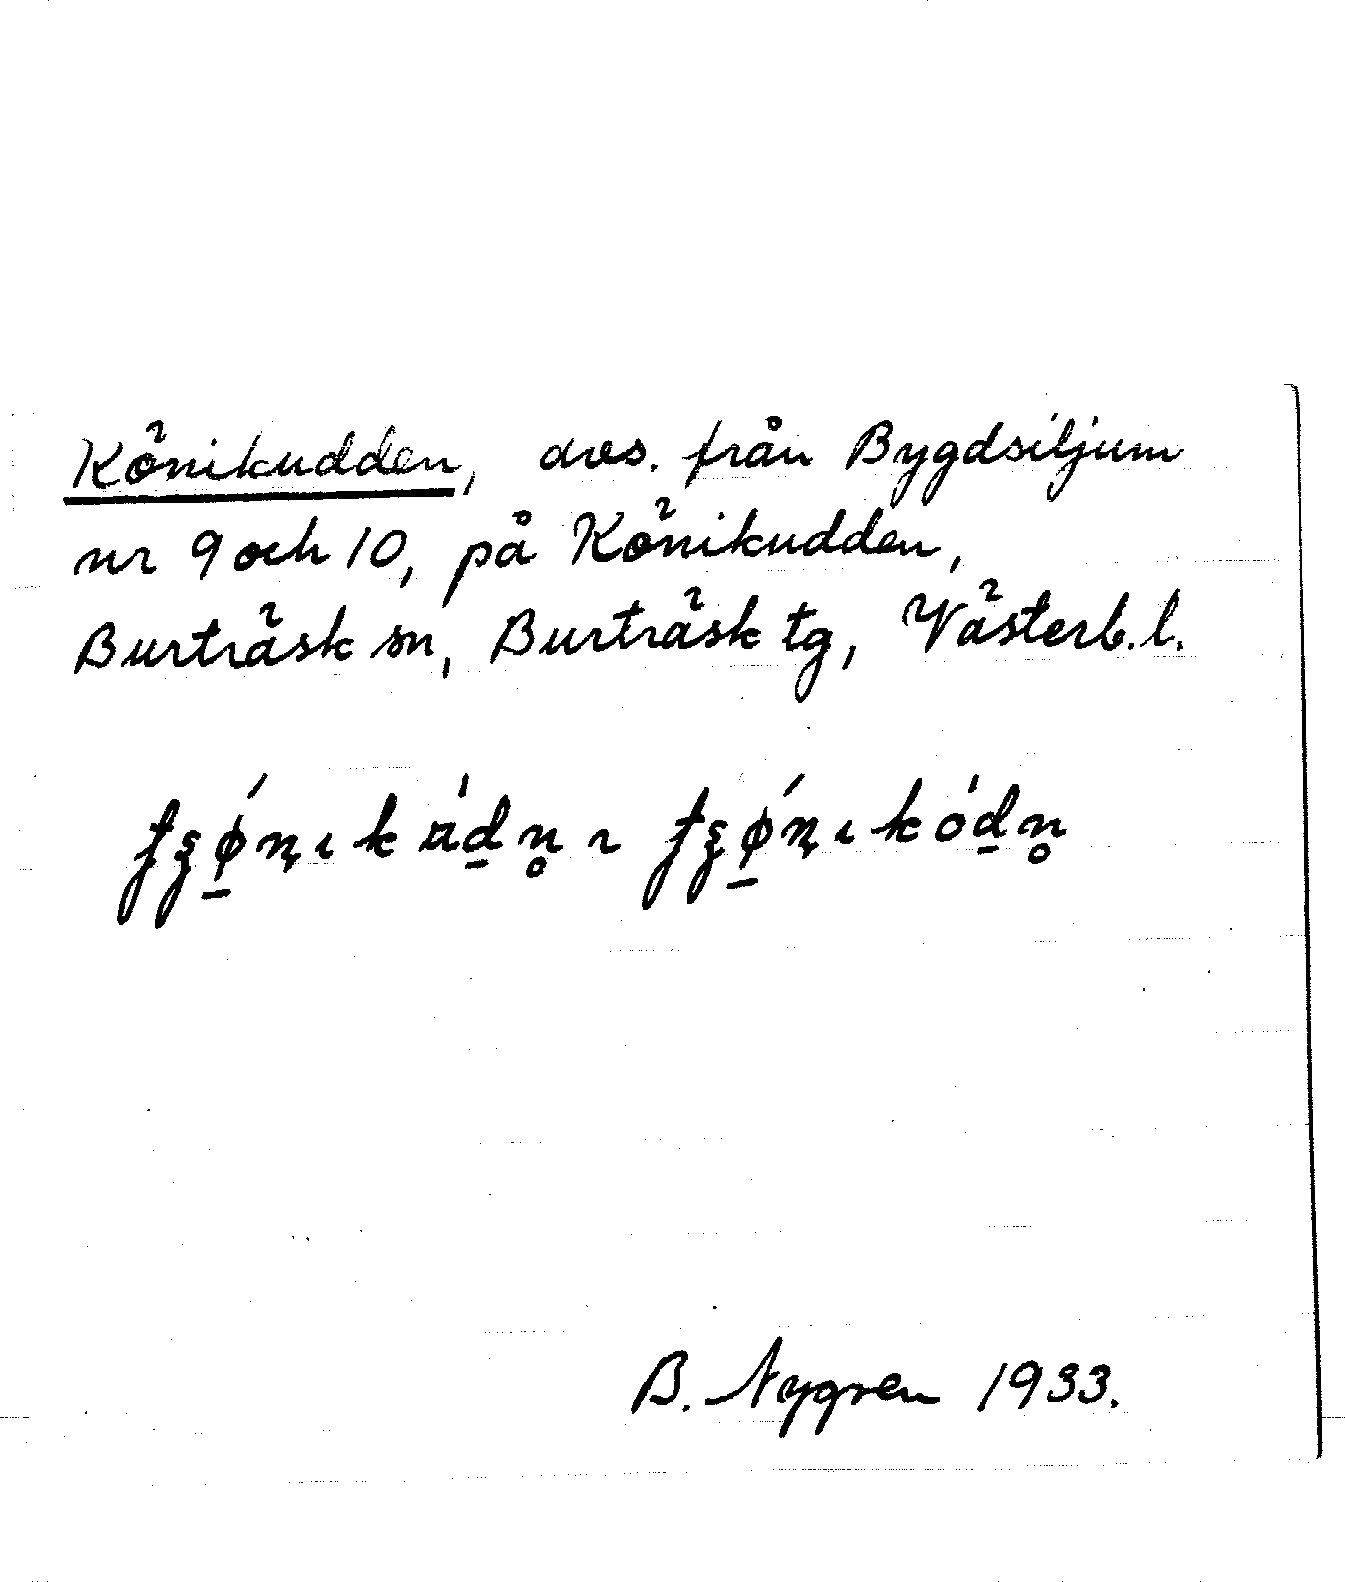 Könikudden, avs. från Bygdsiljum
nr 9 och 10, på Könikudden,
Burträsk sn, Burträsk tg, Västerb.l.
B. Nygren 1933.